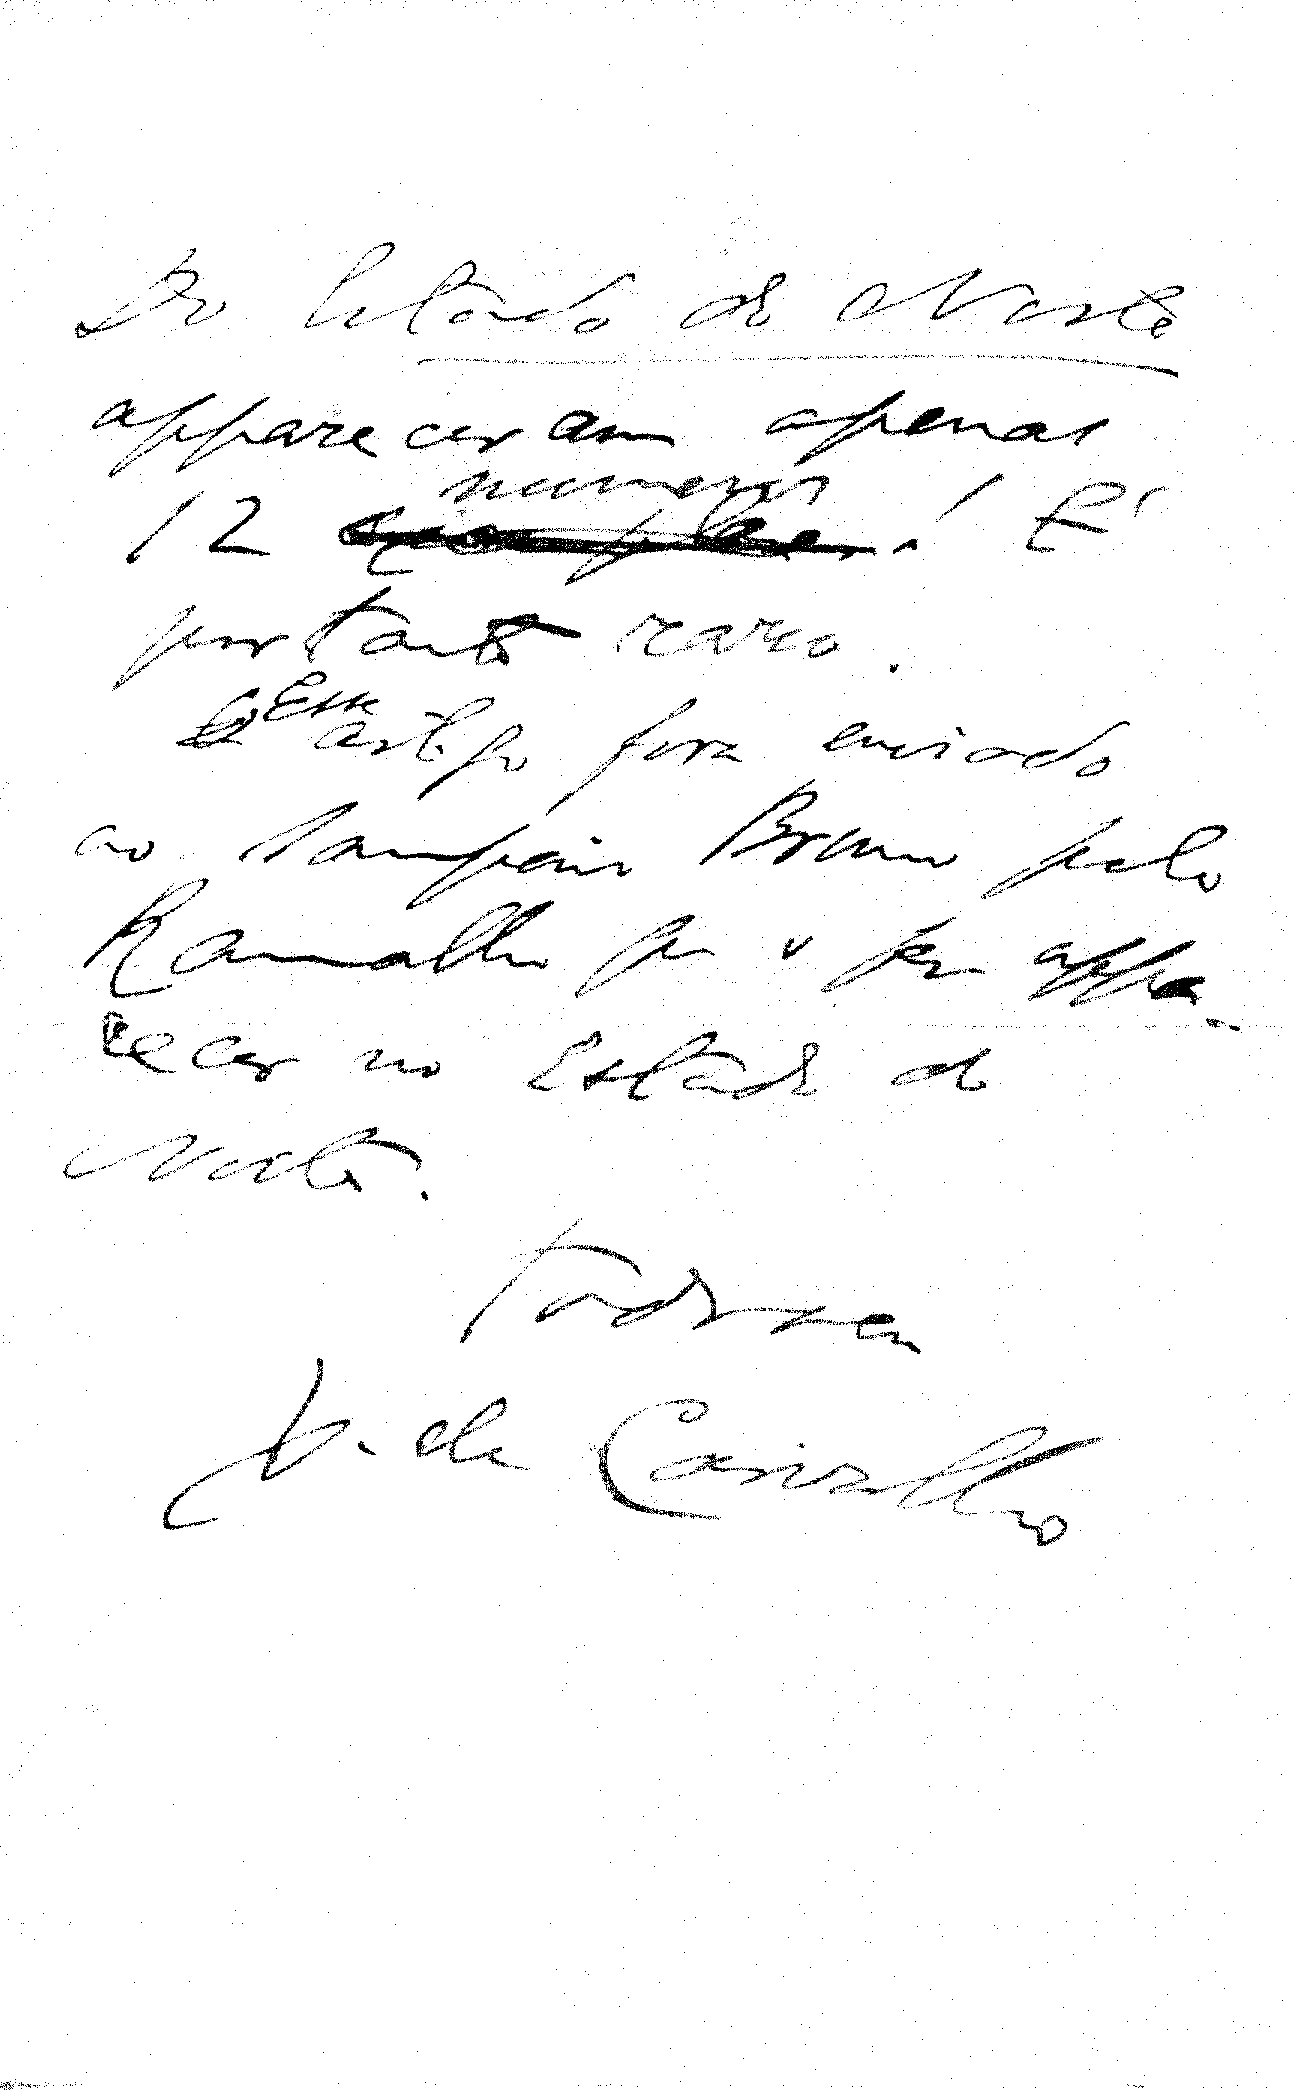 Do Estado do Norte
appareceram apenas
12 numeros ! É
portanto raro.
Esse artigo fora enviado
ao Sampaio Bruno pelo
Ramalho q o fez appa-
recer no Estado do
Norte.
J. de Carvalho